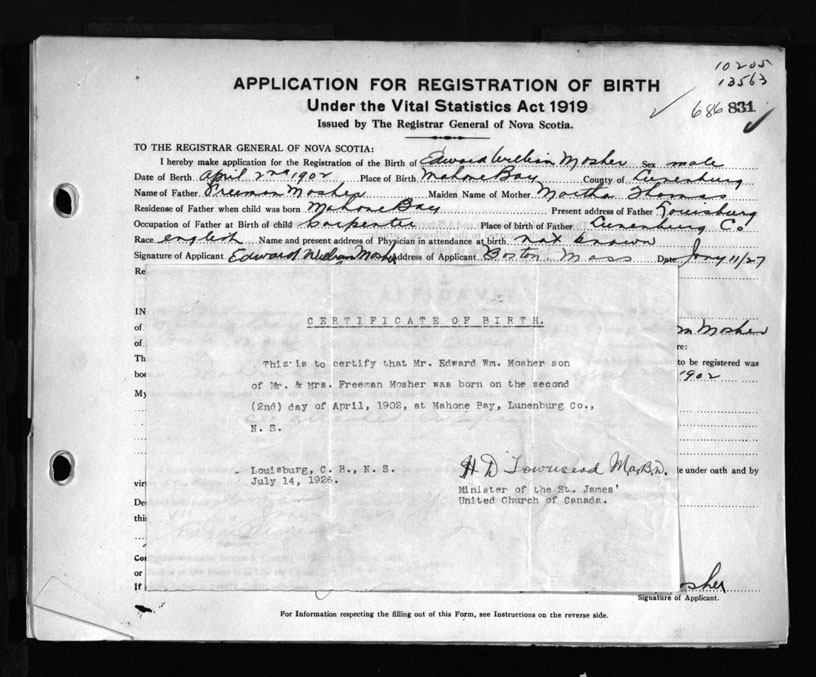 10205
13563
686 831
APPLICATION FOR REGISTRATION OF BIRTH
Under the Vital Statistics Act 1919
Issued by The Registrar General of Nova Scotia.
TO THE REGISTRAR GENERAL OF NOVA SCOTIA:
I hereby make application for the Registration of the Birth of Edward William Mosher Sex male
Date of Birth April 2nd 1902 Place of Birth Mahone Bay County of Lunenburg
Name of Father Freeman Mosher Maiden Name of Mother Martha Thomas
Residense of Father when child was born Mahone Bay Present address of Father Louisburg
Occupation of Father at Birth of child Carpenter Place of birth of Father Lunenburg Co
Race english Name and present address of Physician in attendance at birth not known
Signature of Applicant Edward William Mosher Address of Applicant Boston Mass Date Jany 11/27
Re
IN
of
m Mosher
of
re:
Th to be registered was
bor 1902
My
CERTIFICATE OF BIRTH.
This is to certify that Mr. Edward Wm. Mosher son
of Mr. & Mrs. Freeman Mosher was born on the second
(2nd) day of April, 1902, at Mahone Bay, Lunenburg Co.,
N. S.
Louisburg, C. B., N. S.
July 14, 1926.
H D Townsend M.A.B.D.
Minister of the St. James'
United Church of Canada.
le under oath and by
vir
De
this
Co
or
If
osher
Signature of Applicant.
For Information respecting the filling out of this Form, see Instructions on the reverse side.